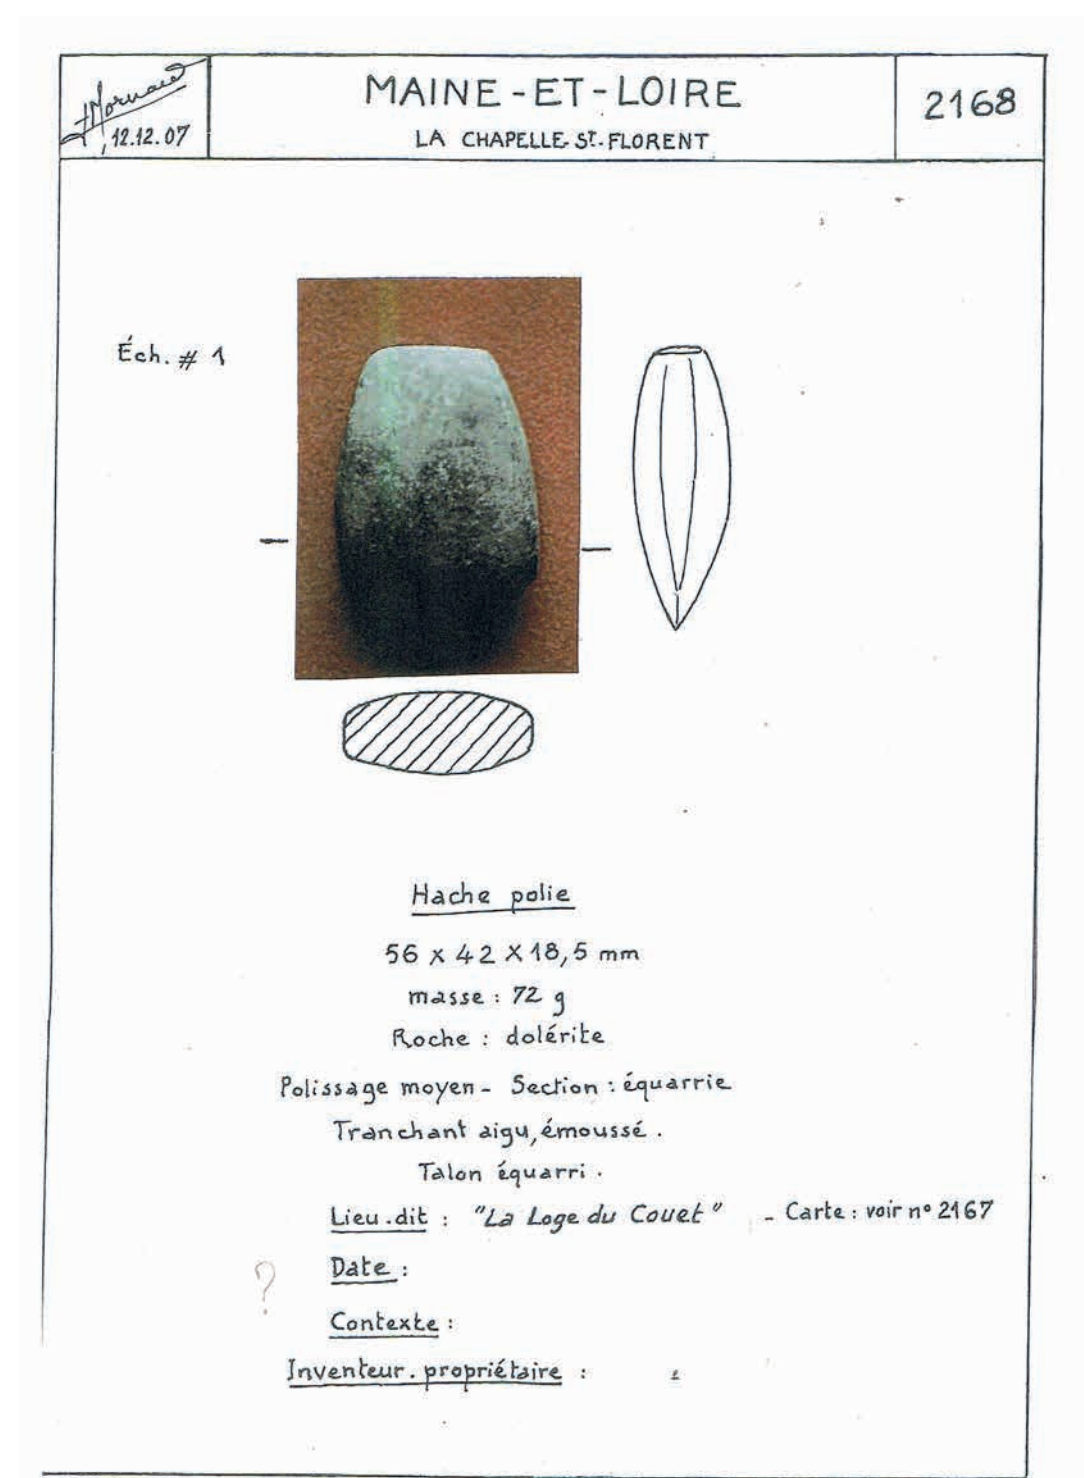 12.12.07
MAINE-ET-LOIRE
LA CHAPELLE-ST-FLORENT
2168
Éch. # 1
Hache polie
56 x 42 x 18,5 mm
masse : 72 g
Roche : dolérite
Polissage moyen - Section : équarrie
Tranchant aigu, émoussé.
Talon équarri.
Lieu.dit : "La Loge du Couet" - Carte : voir n° 2167
?
Date :
Contexte :
Inventeur. propriétaire :